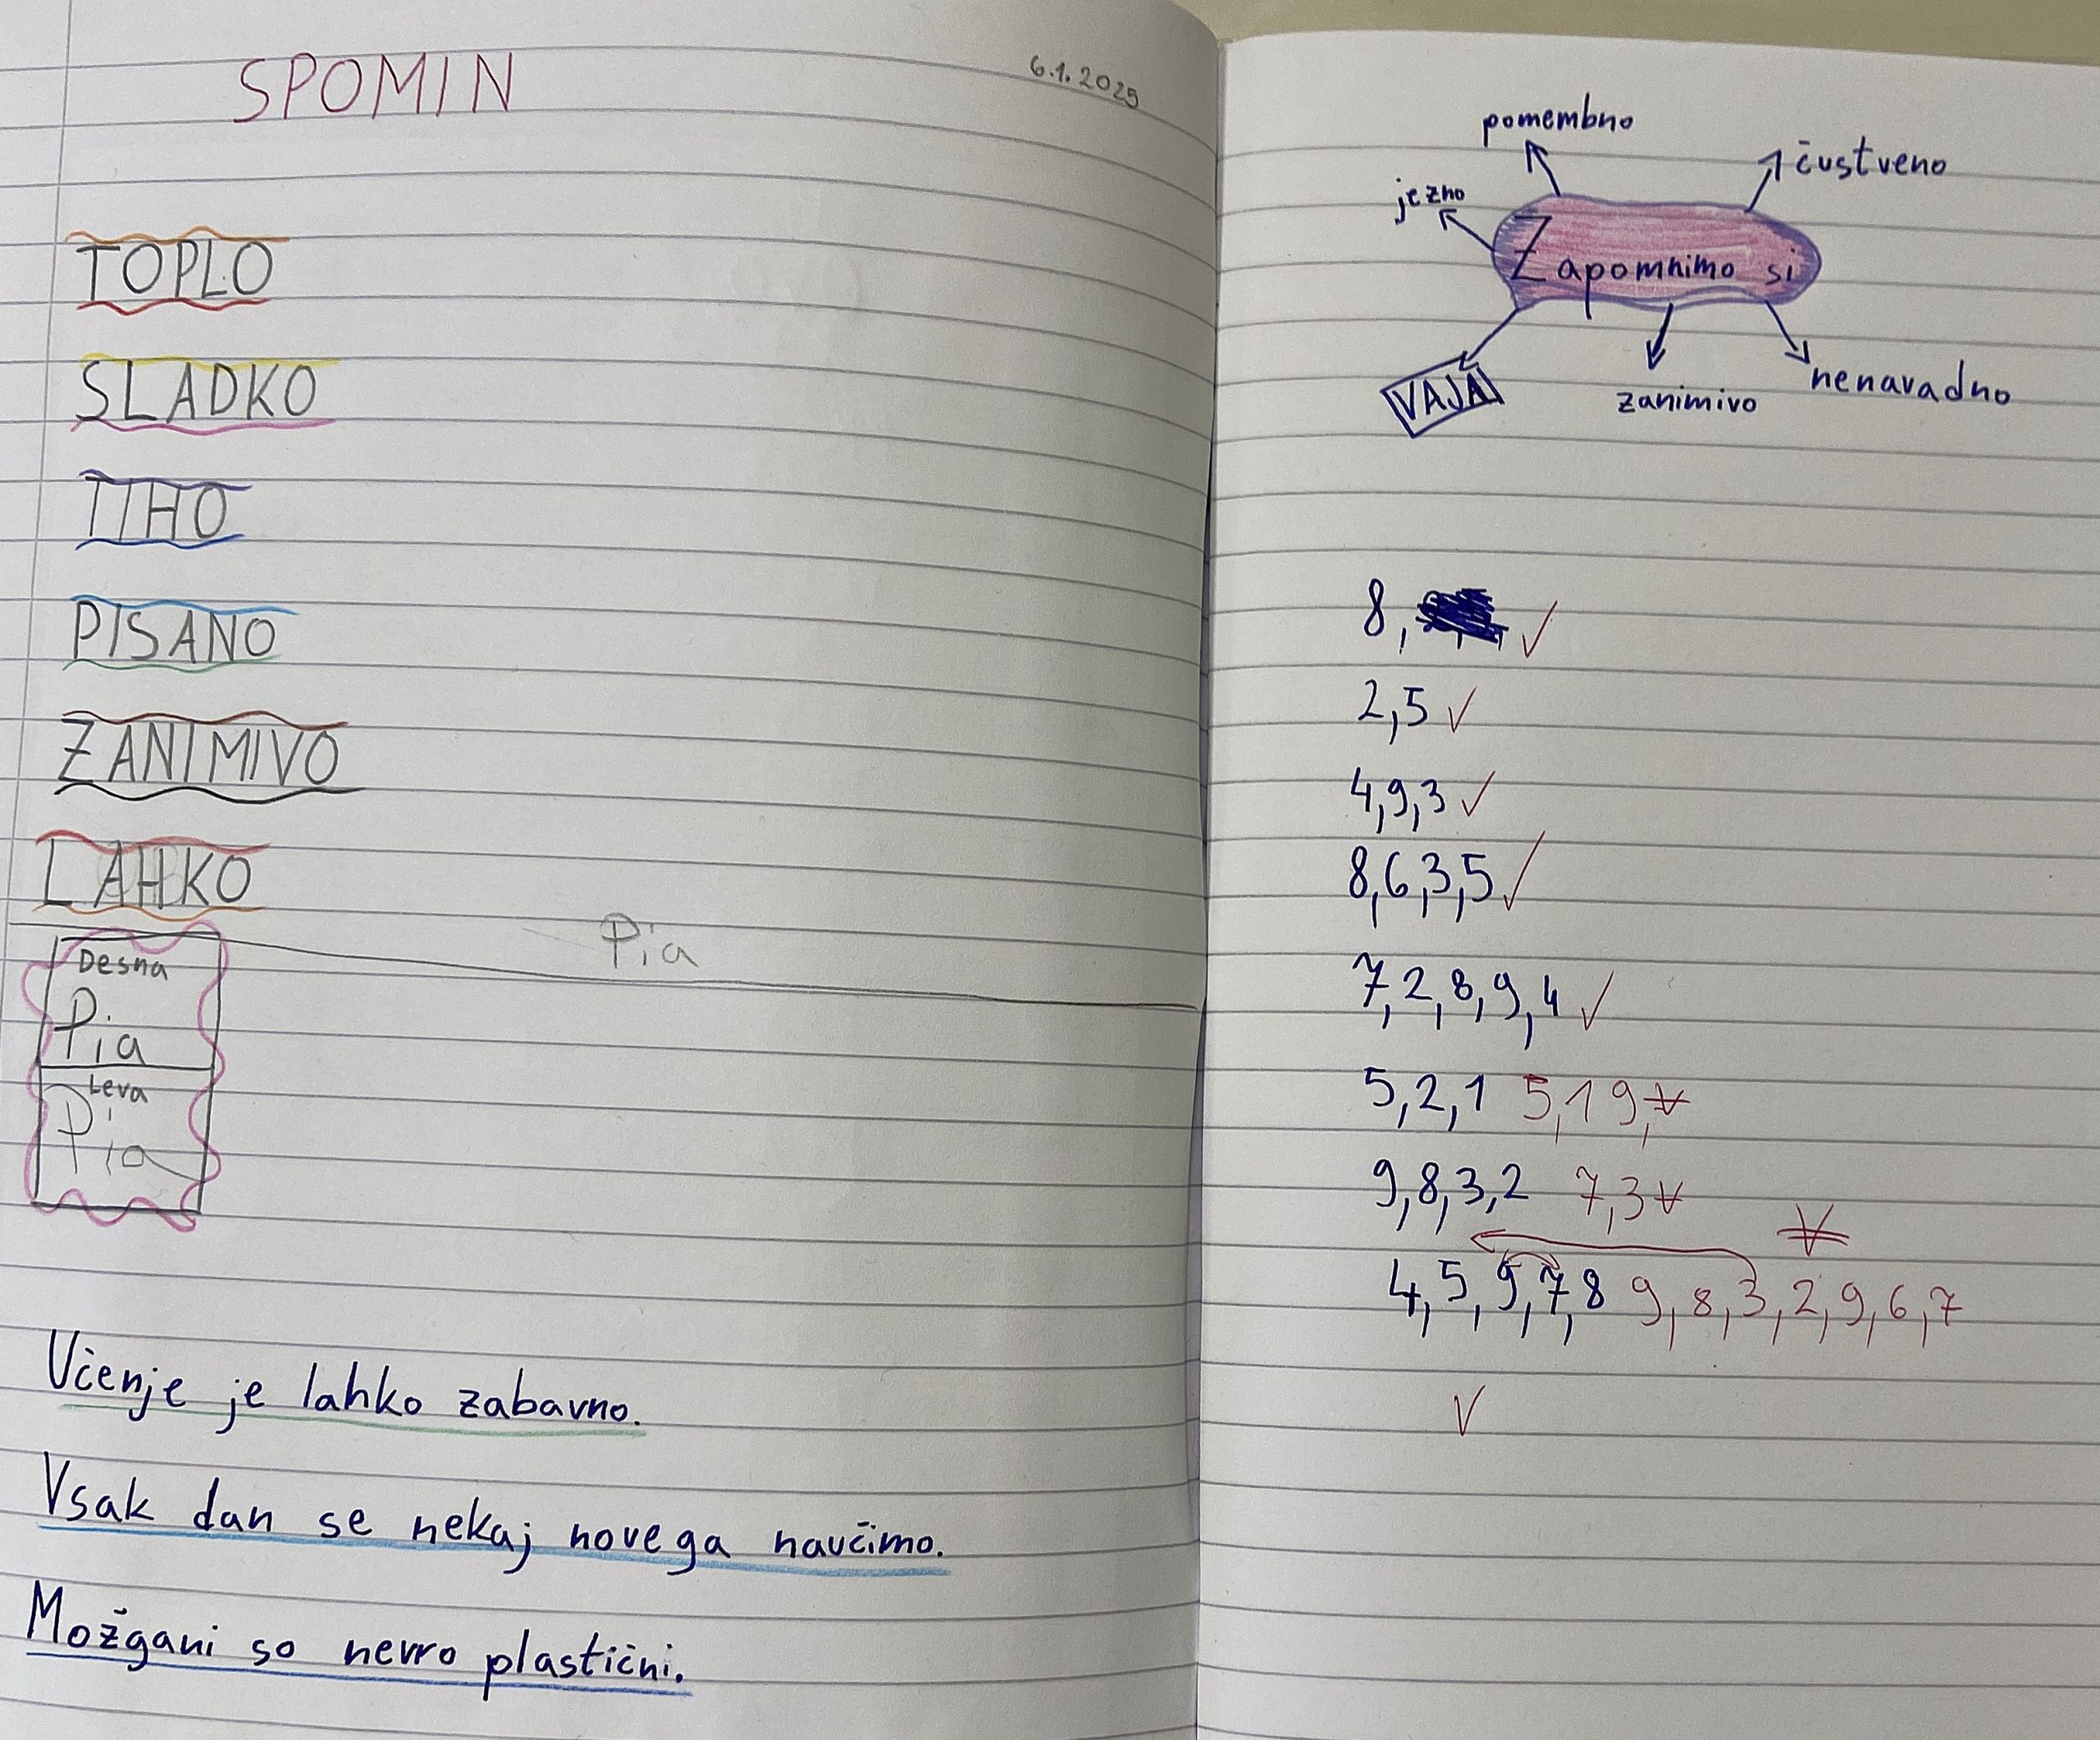 SPOMIN
6.1.2025
TOPLO
SLADKO
TIHO
PISANO
ZANIMIVO
LAHKO
Pia
Desna
Pia
Leva
Pia
Učenje je lahko zabavno.
Vsak dan se nekaj novega naučimo.
Možgani so nevro plastični.
pomembno
čustveno
jezno
Zapomnimo si
VAJA
zanimivo
nenavadno
8,
2,5 ✓
4,9,3 ✓
8,6,3,5 ✓
7,2,8,9,4 ✓
5,2,1 5,1 9,
9,8,3,2 7,3
4,5,9,7,8 9,8,3,2,9,6,7
✓